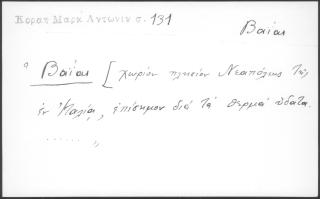 Κοραῆ Μάρκ Ἀντωνῖν σ. 131
Βαῖαι
" Βαΐαι [ χωρίον πλησίον Νεαπόλεως τῆς
ἐν Ἰταλίᾳ, ἐπίσημον διὰ τὰ θερμὰ ὕδατα.
......... „